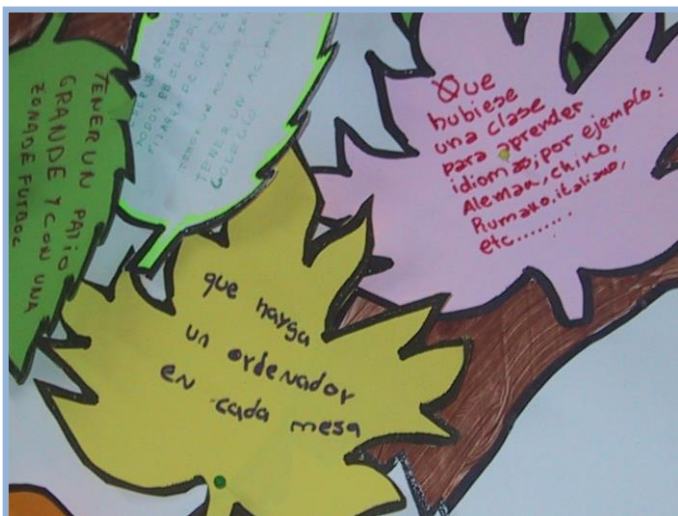 TENER UN PATIO
GRANDE Y CON UNA
ZONA DE FUTBOL
TENER UN
Que
hubiese
una clase
para aprender
idiomas, por ejemplo:
Aleman, chino,
Rumano, italiano,
etc........
que hayga
un ordenador
en cada mesa